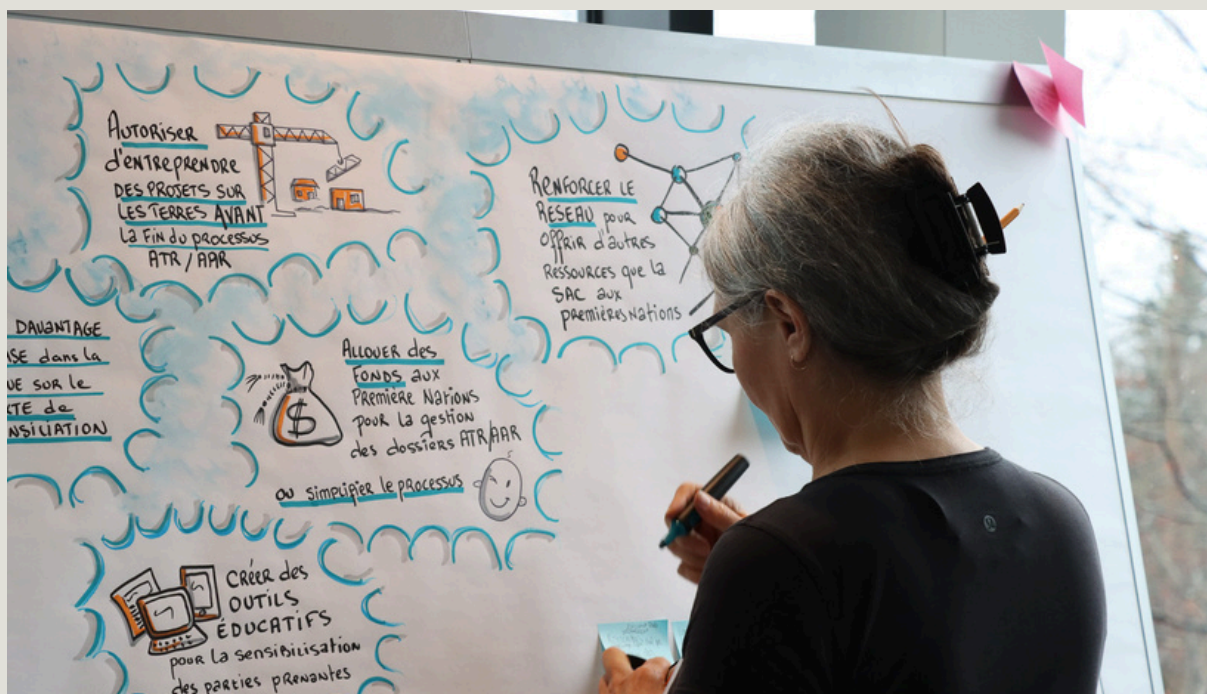 AUTORISER
d'ENTREPRENDRE
DES PROJETS SUR
LES TERRES AVANT
LA FIN DU PROCESSUS
ATR / AAR
RENFORCER LE
RÉSEAU pour
OFFRIR d'AUTRES
RESSOURCES QUE LA
SAC aux
premières NATIONS
DAVANTAGE
dans la
SUR LE
de
ALLOUER des
FONDS aux
PREMIÈRE NATIONS
pour la gestion
des dossiers ATR/AAR
ou simplifier le processus
$
CRÉER des
OUTILS
ÉDUCATIFS
pour la sensibilisation
des parties prenantes